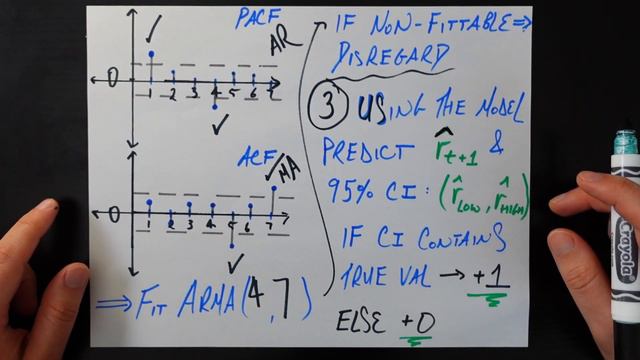 PACF
AR
0
1 2 3 4 5 6 7
ACF/MA
0
1 2 3 4 5 6 7
⇒ FIT ARMA(4,7)
IF NON-FITTABLE ⇒
DISREGARD
3 USING THE MODEL
PREDICT r̂t+1 &
95% CI: (r̂LOW, r̂HIGH)
IF CI CONTAINS
TRUE VAL → +1
ELSE +0
Crayola